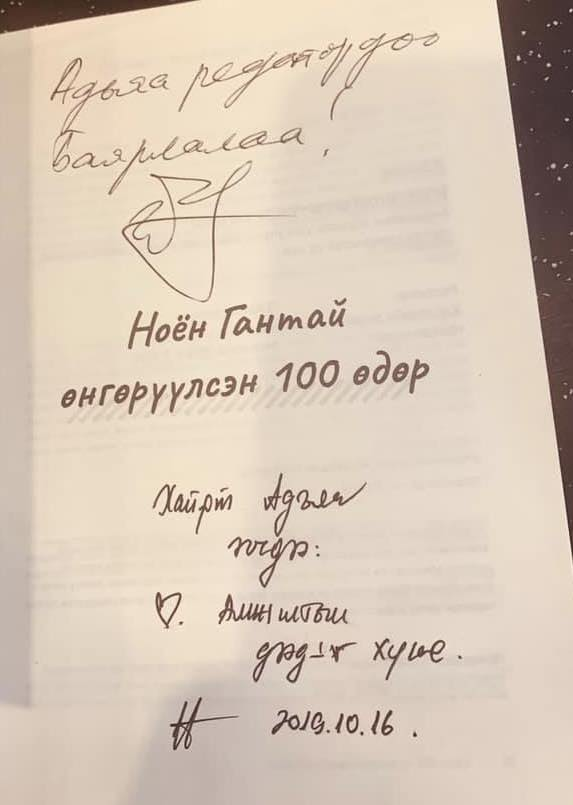 Адъяа редактордоо
Баярлалаа!
Ноён Гантай
өнгөрүүлсэн 100 өдөр
Хайрт Адъяа
эгчдээ:
♡. Амжилтын
дээдийг хүсье.
2019.10.16.